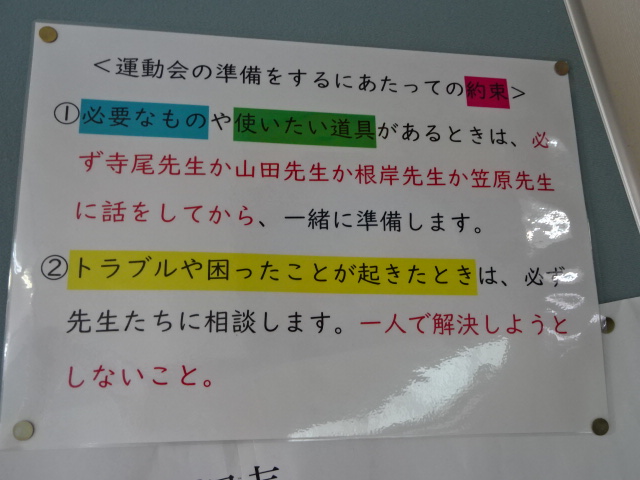 ＜運動会の準備をするにあたっての約束＞
①必要なものや使いたい道具があるときは、必
ず寺尾先生か山田先生か根岸先生か笠原先生
に話をしてから、一緒に準備します。
②トラブルや困ったことが起きたときは、必ず
先生たちに相談します。一人で解決しようと
しないこと。